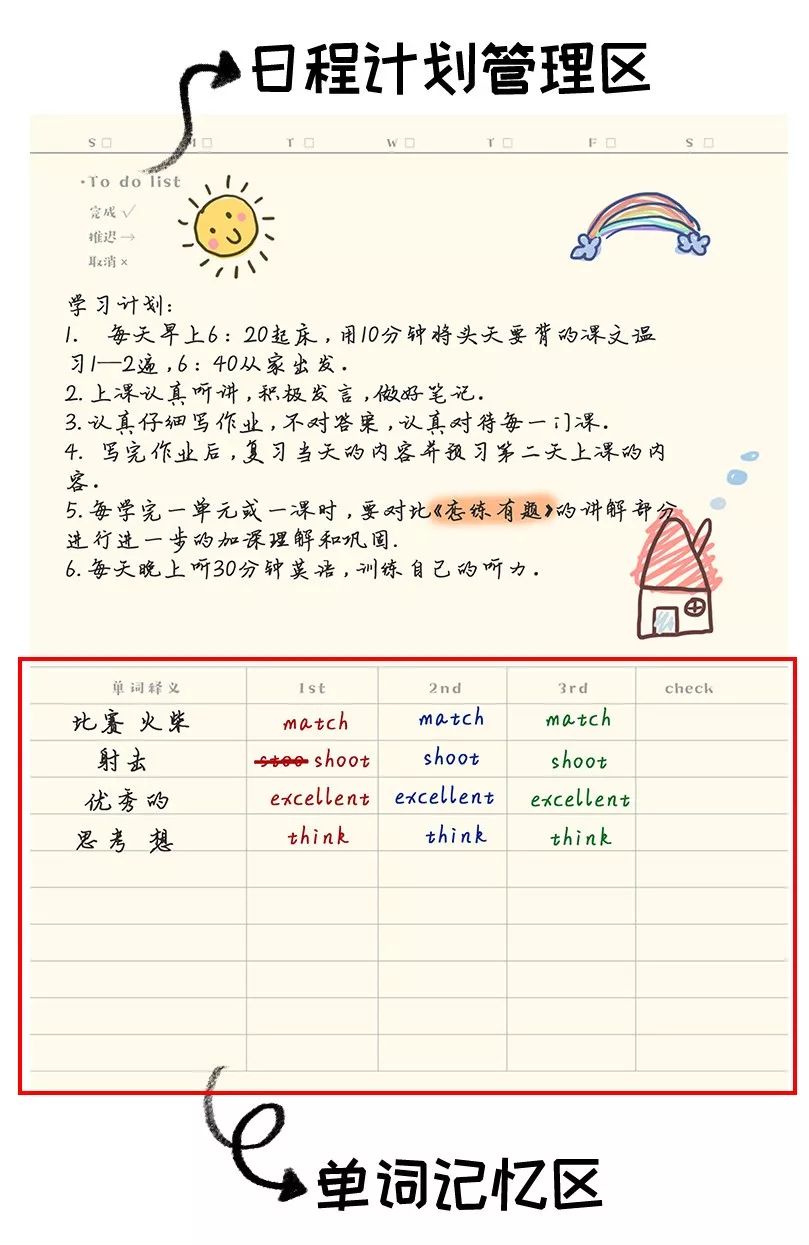 日程计划管理区
S □ M □ T □ W □ T □ F □ S □
·To do list
完成 √
推迟 →
取消 ×
学习计划:
1. 每天早上6:20起床,用10分钟将头天要背的课文温
习1—2遍,6:40从家出发.
2.上课认真听讲,积极发言,做好笔记.
3.认真仔细写作业,不对答案,认真对待每一门课.
4. 写完作业后,复习当天的内容并预习第二天上课的内
容.
5.每学完一单元或一课时,要对比《恋练有题》的讲解部分
进行进一步的加深理解和巩固.
6.每天晚上听30分钟英语,训练自己的听力.
单词释义 1st 2nd 3rd check
比赛 火柴 match match match
射击 stoo shoot shoot shoot
优秀的 excellent excellent excellent
思考 想 think think think
单词记忆区